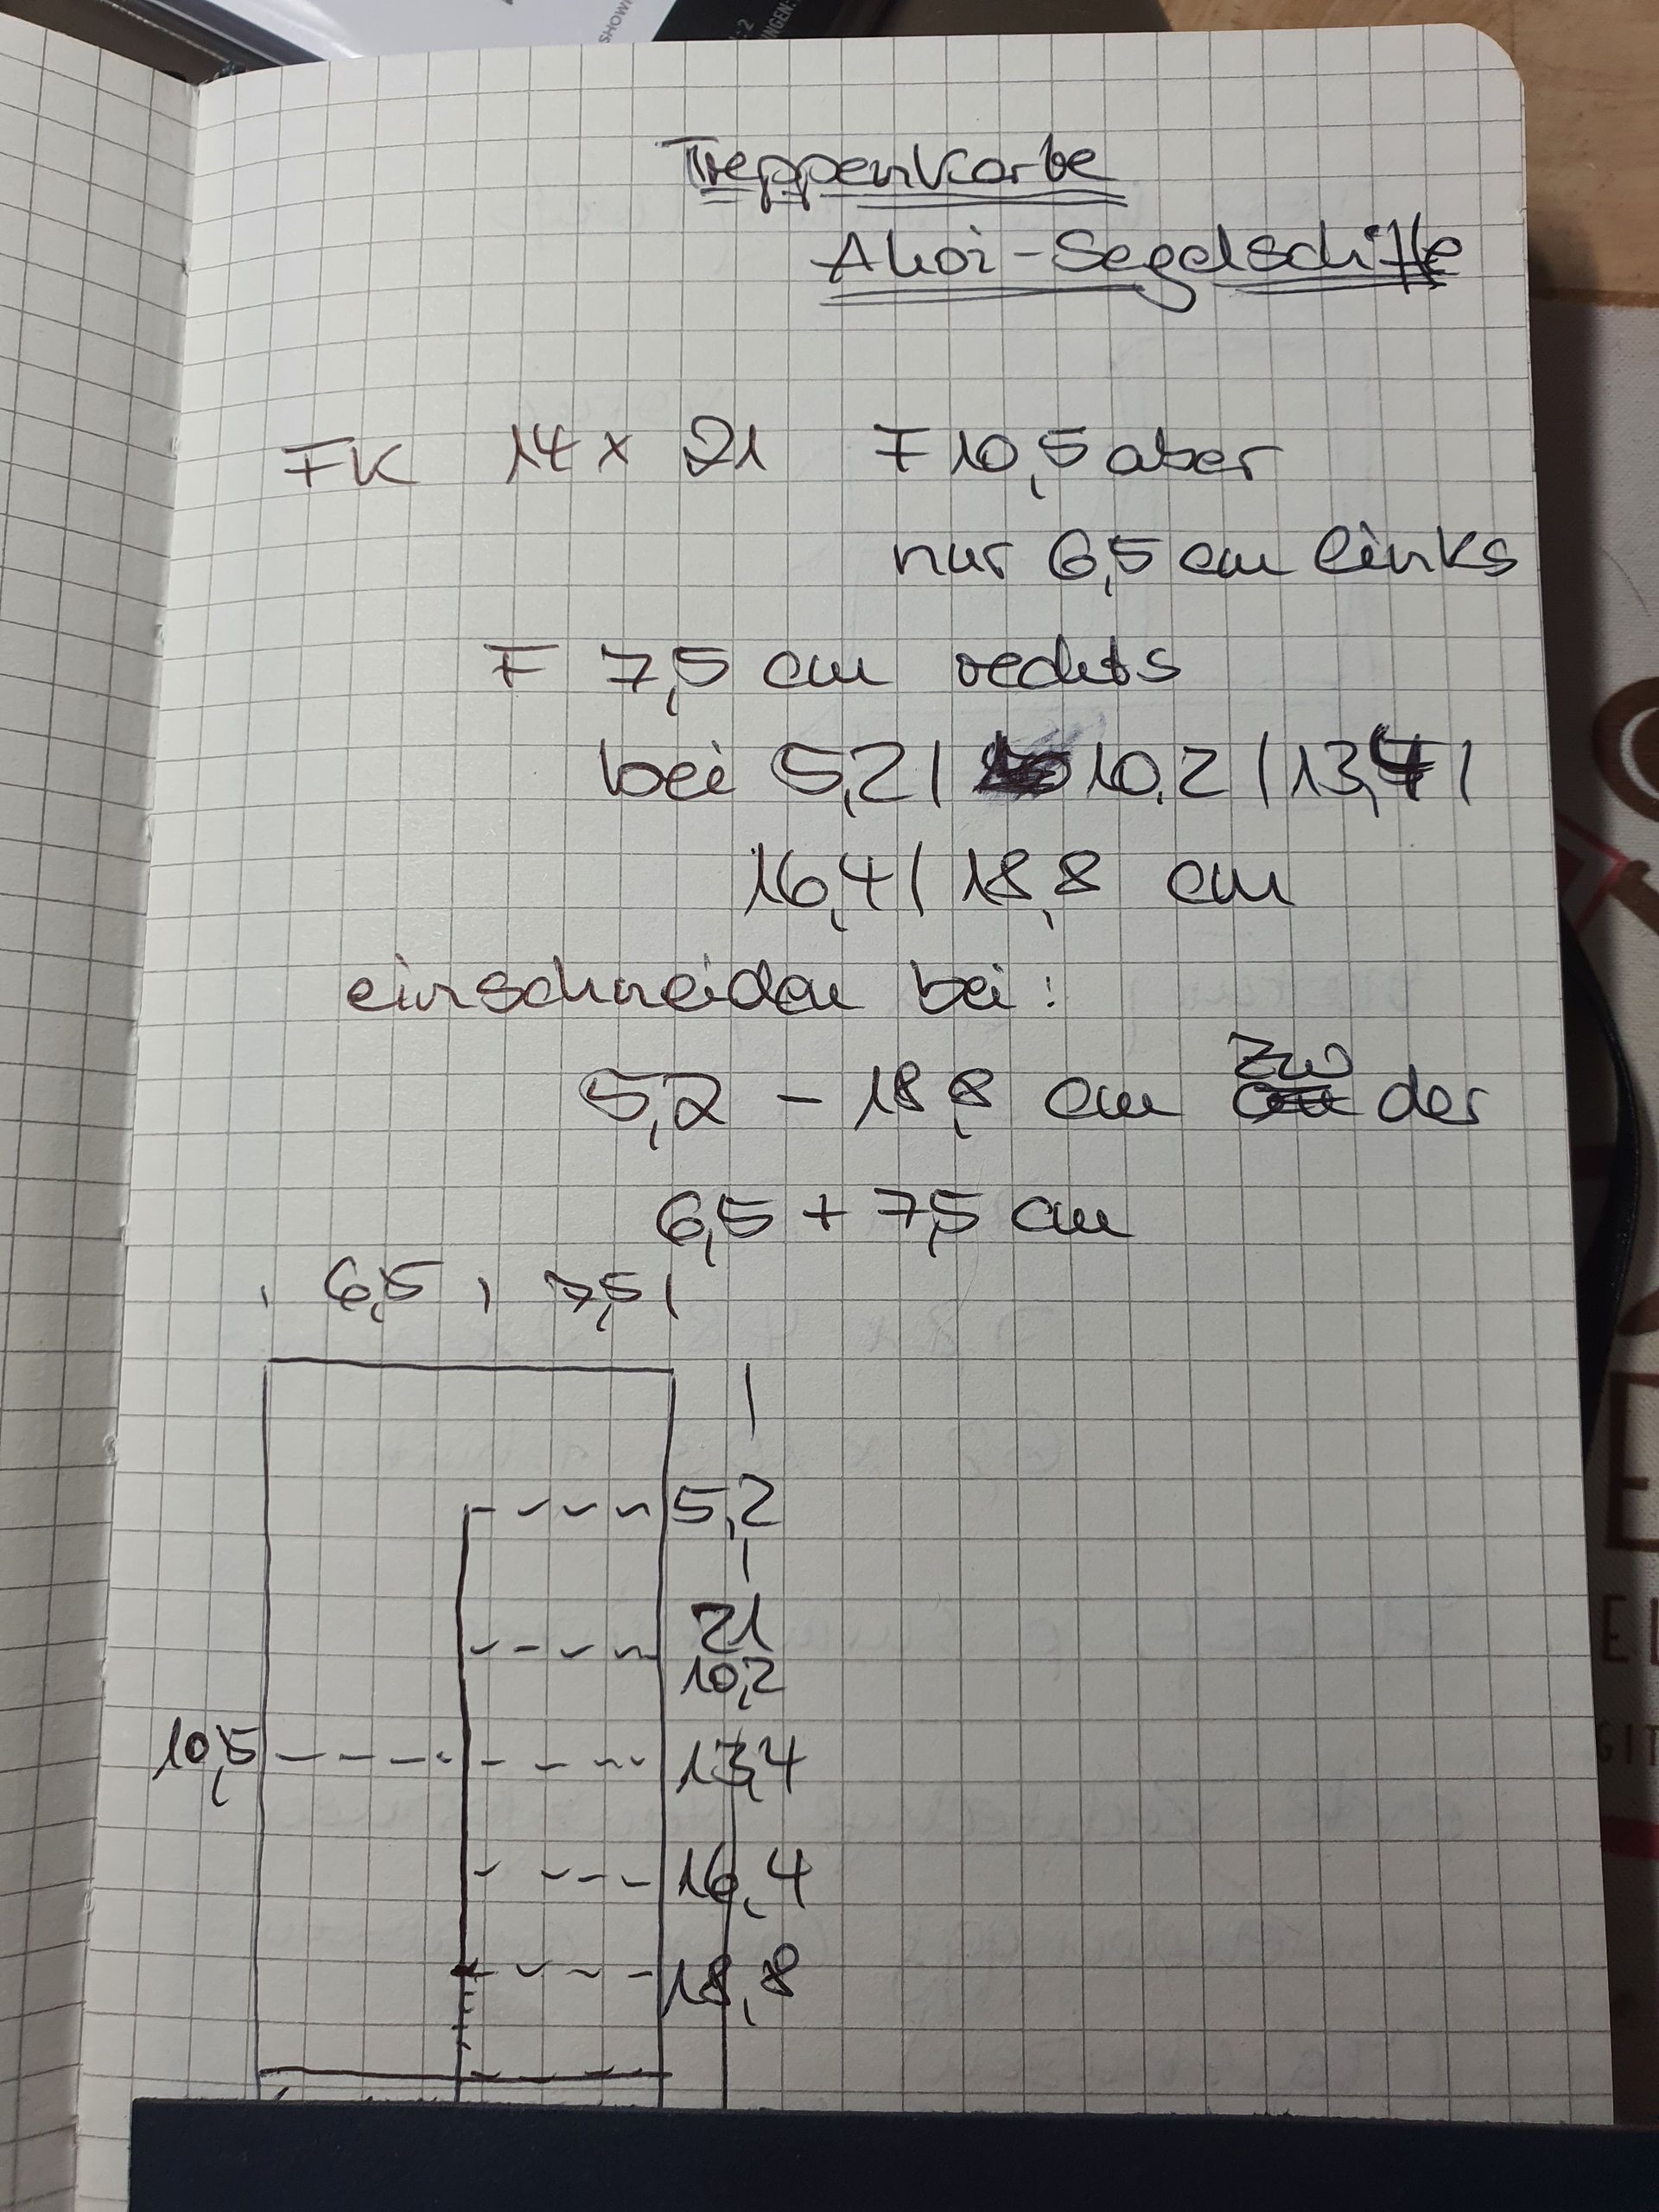 Treppenkarte
Ahoi-Segelschiffe
FK 14 x 21 F 10,5 aber
nur 6,5 cm links
F 7,5 cm rechts
bei 5,2 | 10,2 | 13,4 |
16,4 | 18,8 cm
einschneiden bei:
5,2 - 18,8 cm zw der
6,5 + 7,5 cm
6,5 7,5
5,2
21
10,2
10,5 13,4
16,4
18,8